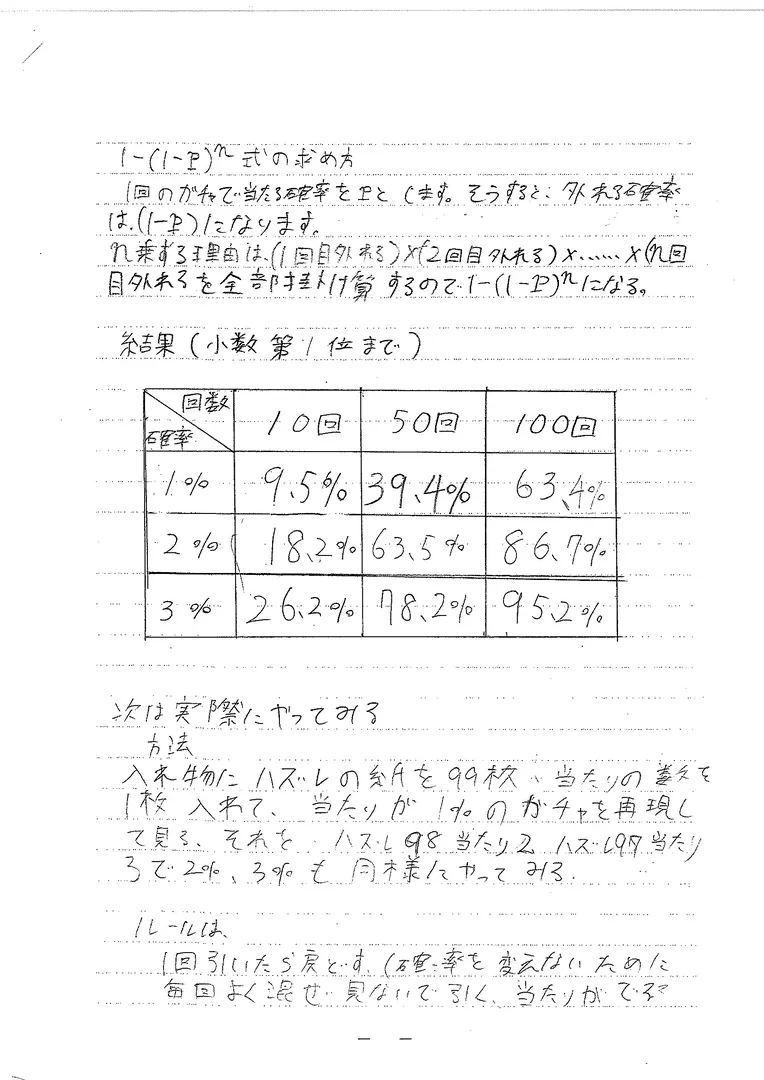 1-(1-P)^n 式の求め方
1回のガチャで当たる確率をPとします。そうすると、外れる確率
は、(1-P)になります。
n乗する理由は、(1回目外れる)×(2回目外れる)×……×(n回
目外れるを全部掛け算するので1-(1-P)^nになる。
結果(小数第1位まで)
回数 10回 50回 100回
確率
1% 9.5% 39.4% 63.4%
2% 18.2% 63.5% 86.7%
3% 26.2% 78.2% 95.2%
次は実際にやってみる
方法
入れ物にハズレの紙を99枚、当たりの数を
1枚入れて、当たりが1%のガチャを再現し
て見る、それを ハズレ98当たり2 ハズレ97当たり
3で2%、3%も同様にやってみる.
ルールは、
1回引いたら戻とす、(確率を変えないために
毎回よく混ぜ 見ないで引く、当たりがでるま